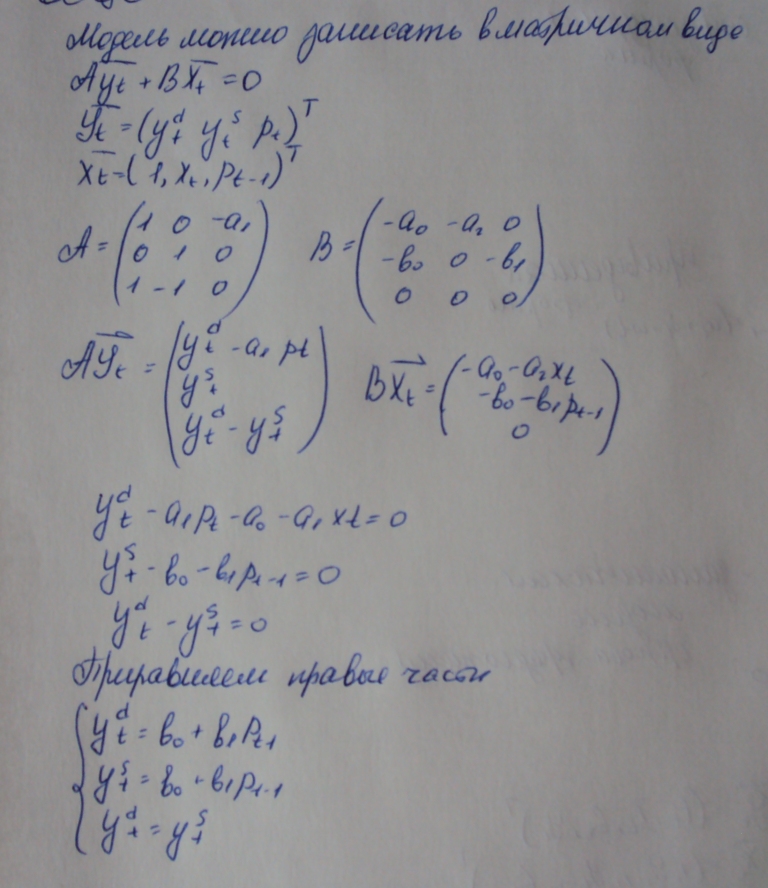 Модель можно записать в матричном виде
Ayt + BXt = 0
Yt = (ytd yts pt)T
xt = (1, xt, pt-1)T
A = (1 0 -a1
0 1 0
1 -1 0) B = (-a0 -a2 0
-b0 0 -b1
0 0 0)
AYt = (ytd - a1 pt
yts
ytd - yts) BXt = (-a0 - a2xt
-b0 - b1pt-1
0)
ytd - a1pt - a0 - a1xt = 0
yts - b0 - b1pt-1 = 0
ytd - yts = 0
Приравняем правые части
{ ytd = b0 + b1Pt-1
yts = b0 + b1pt-1
ytd = yts